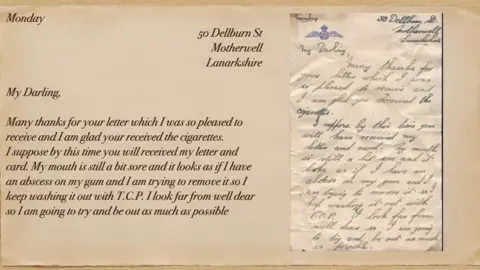 Monday
50 Dellburn St
Motherwell
Lanarkshire
My Darling,
Many thanks for your letter which I was so pleased to
receive and I am glad your received the cigarettes.
I suppose by this time you will received my letter and
card. My mouth is still a bit sore and it looks as if I have
an abscess on my gum and I am trying to remove it so I
keep washing it out with T.C.P. I look far from well dear
so I am going to try and be out as much as possible
Sunday
50 Dellburn St.
Motherwell
Lanarkshire
My Darling
Many thanks for
your letter which I was
so pleased to receive and
I am glad you received the
cigarettes.
I suppose by this time you
will have received my
letter and card. My mouth
is still a bit sore and it
looks as if I have an
abscess on my gum and I
am trying to remove it so I
keep washing it out with
T.C.P. I look far from
well dear so I am going
to try and be out as much
as possible.